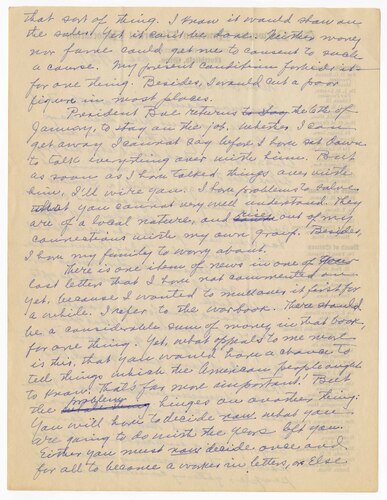 that sort of thing. I know it would shove on
the sales. Yet it can't be done. Neither money
nor favor could get me to consent to such
a course. My present condition forbids it
for one thing. Besides, I would cut a poor
figure in most places.
President Bue returns to stay the 6th of
January, to stay on the job. Whether I can
get away I cannot say before I have set down
to talk everything over with him. But
as soon as I have talked things over with
him, I'll wire you. I have problems to solve
what you cannot very well understand. They
are of a local nature, and out of my
connections with my own group. Besides,
I have my family to worry about.
There is one item of news in one of your
last letters that I have not commented on
yet, because I wanted to mull over it first for
a while. I refer to the warbook. There should
be a considerable sum of money in that book,
for one thing. Yet, what appeals to me most
is this, that you would have a chance to
tell things which the American people ought
to know. That's far more important! But
the problem hinges on another thing:
You will have to decide now what you
are going to do with the years left you.
Either you must now decide once and
for all to become a worker in letters, or else